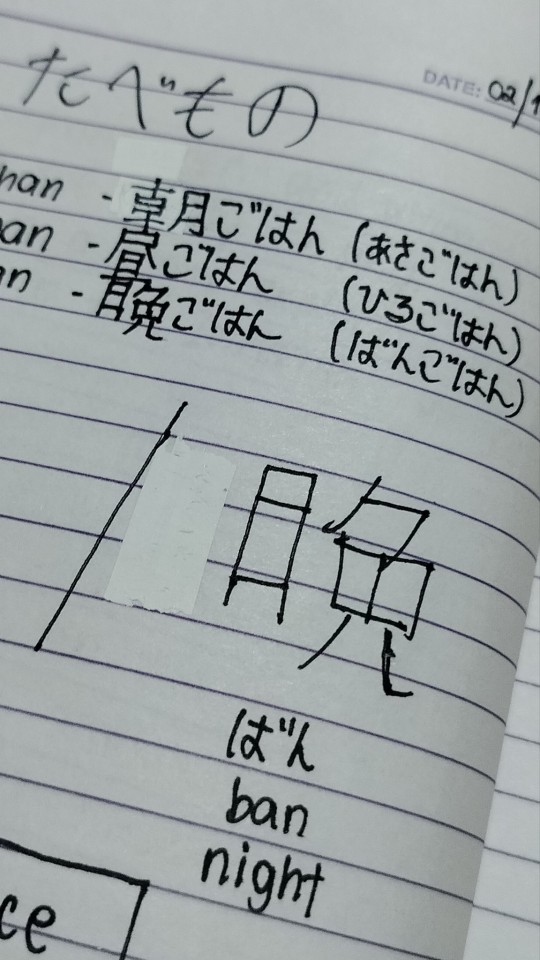 たべもの
DATE: 02/1
han - 朝ごはん (あさごはん)
an - 昼ごはん (ひるごはん)
n - 晩ごはん (ばんごはん)
晩
ばん
ban
night
ce